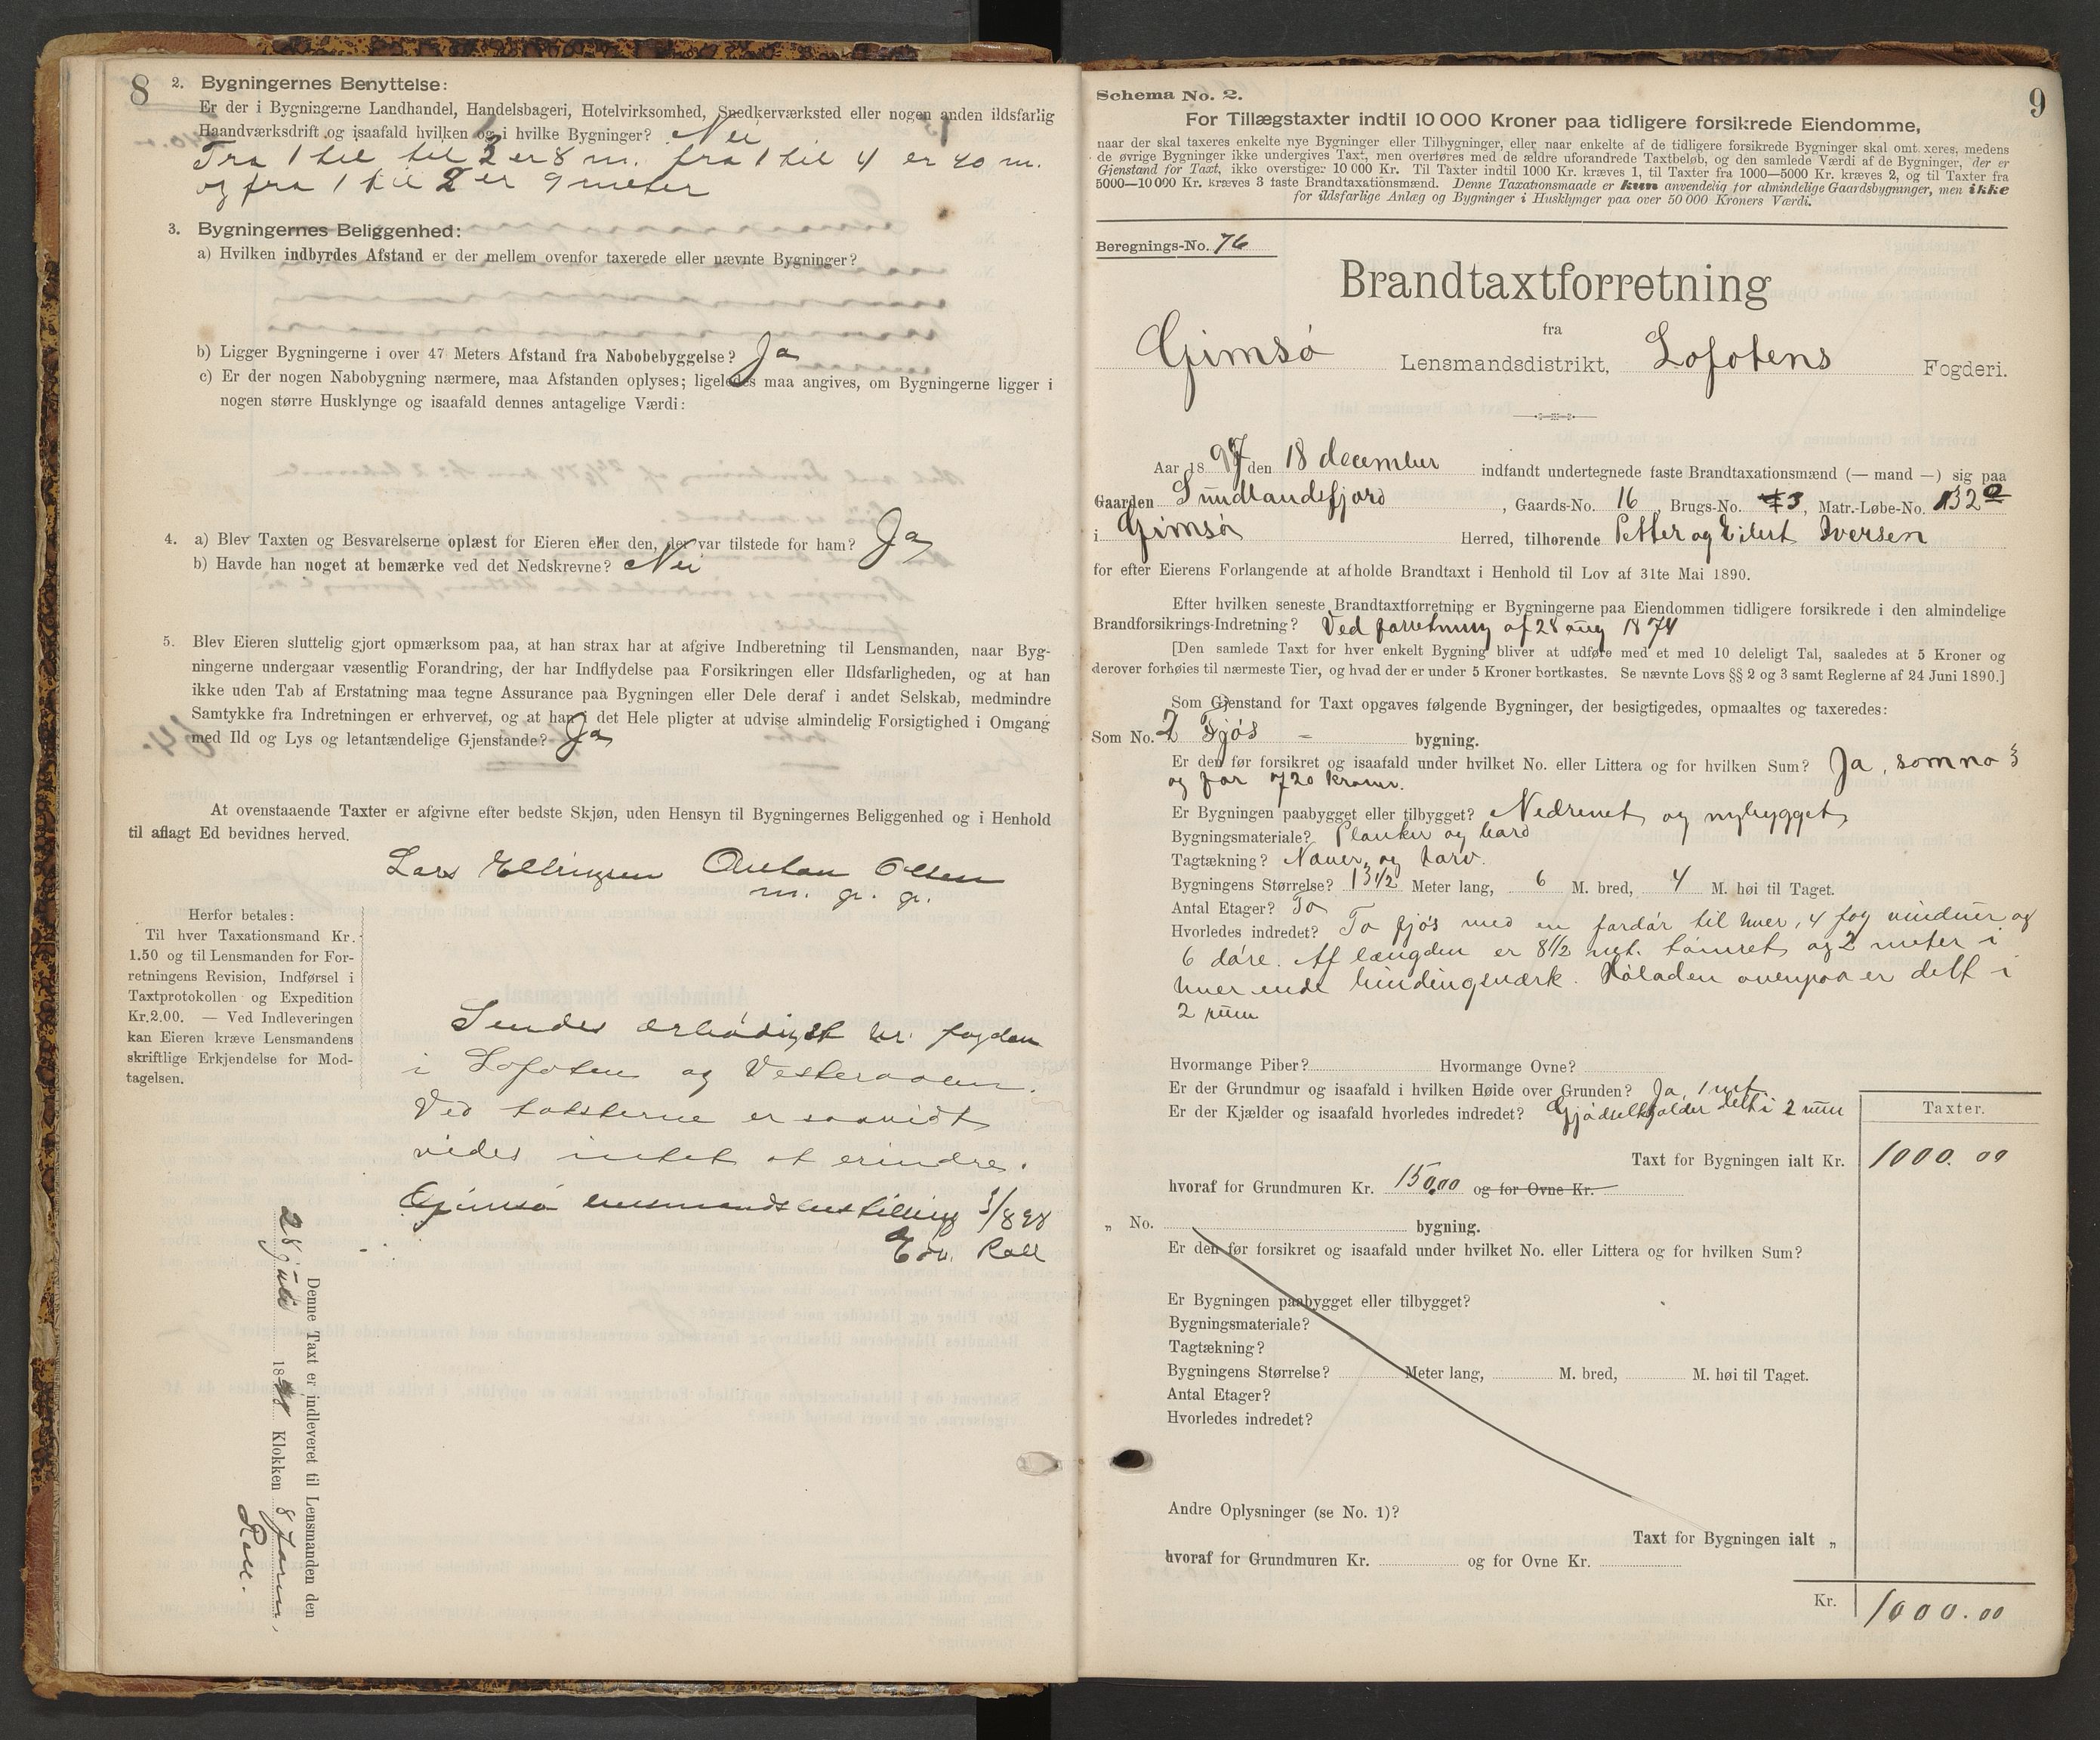 8
2. Bygningernes Benyttelse:
Er der i Bygningerne Landhandel, Handelsbageri, Hotelvirksomhed, Snedkerværksted eller nogen anden ildsfarlig
Haandværksdrift og isaafald hvilken og i hvilke Bygninger? Nei
Fra 1 til til 2 er 8 m. fra 1 til 4 er 40 m.
og fra 1 til 2 er 9 meter
3. Bygningernes Beliggenhed:
a) Hvilken indbyrdes Afstand er der mellem ovenfor taxerede eller nævnte Bygninger?
b) Ligger Bygningerne i over 47 Meters Afstand fra Nabobebyggelse? Ja
c) Er der nogen Nabobygning nærmere, maa Afstanden oplyses; ligeledes maa angives, om Bygningerne ligger i
nogen større Husklynge og isaafald dennes antagelige Værdi:
4. a) Blev Taxten og Besvarelserne oplæst for Eieren eller den, der var tilstede for ham? Ja
b) Havde han noget at bemærke ved det Nedskrevne? Nei
5. Blev Eieren sluttelig gjort opmærksom paa, at han strax har at afgive Indberetning til Lensmanden, naar Byg-
ningerne undergaar væsentlig Forandring, der har Indflydelse paa Forsikringen eller Ildsfarligheden, og at han
ikke uden Tab af Erstatning maa tegne Assurance paa Bygningen eller Dele deraf i andet Selskab, medmindre
Samtykke fra Indretningen er erhvervet, og at han i det Hele pligter at udvise almindelig Forsigtighed i Omgang
med Ild og Lys og letantændelige Gjenstande? Ja
At ovenstaaende Taxter er afgivne efter bedste Skjøn, uden Hensyn til Bygningernes Beliggenhed og i Henhold
til aflagt Ed bevidnes herved.
Lars Ellingsen Anton Olsen
m. p. p.
Herfor betales:
Til hver Taxationsmand Kr.
1.50 og til Lensmanden for For-
retningens Revision, Indførsel i
Taxtprotokollen og Expedition
Kr. 2.00. — Ved Indleveringen
kan Eieren kræve Lensmandens
skriftlige Erkjendelse for Mod-
tagelsen.
Sendes ærbødigst hr. fogden
i Lofoten og Vesteraalen.
Ved taksterne er saavidt
vides intet at erindre.
Gimsø lensmandsbestilling 3/8 98
Edv. Rall
Denne Taxt er indleveret til Lensmanden den
28 juli 1898 Klokken 8 form,
Rall.
9
Schema No. 2.
For Tillægstaxter indtil 10 000 Kroner paa tidligere forsikrede Eiendomme,
naar der skal taxeres enkelte nye Bygninger eller Tilbygninger, eller naar enkelte af de tidligere forsikrede Bygninger skal omtaxeres, medens
de øvrige Bygninger ikke undergives Taxt, men overføres med de ældre uforandrede Taxtbeløb, og den samlede Værdi af de Bygninger, der er
Gjenstand for Taxt, ikke overstiger 10 000 Kr. Til Taxter indtil 1000 Kr. kræves 1, til Taxter fra 1000—5000 Kr. kræves 2, og til Taxter fra
5000—10 000 Kr. kræves 3 faste Brandtaxationsmænd. Denne Taxationsmaade er kun anvendelig for almindelige Gaardsbygninger, men ikke
for ildsfarlige Anlæg og Bygninger i Husklynger paa over 50 000 Kroners Værdi.
Beregnings-No. 76
Brandtaxtforretning
fra
Gimsø Lensmandsdistrikt, Lofotens Fogderi.
Aar 1897 den 18 december indfandt undertegnede faste Brandtaxationsmænd (— mand —) sig paa
Gaarden Sundlandsfjord, Gaards-No. 16, Brugs-No. 3, Matr.-Løbe-No. 132a
i Gimsø Herred, tilhørende Petter og Eilert Iversen
for efter Eierens Forlangende at afholde Brandtaxt i Henhold til Lov af 31te Mai 1890.
Efter hvilken seneste Brandtaxtforretning er Bygningerne paa Eiendommen tidligere forsikrede i den almindelige
Brandforsikrings-Indretning? Ved forretning af 28 aug 1874
[Den samlede Taxt for hver enkelt Bygning bliver at udføre med et med 10 deleligt Tal, saaledes at 5 Kroner og
derover forhøies til nærmeste Tier, og hvad der er under 5 Kroner bortkastes. Se nævnte Lovs §§ 2 og 3 samt Reglerne af 24 Juni 1890.]
Som Gjenstand for Taxt opgaves følgende Bygninger, der besigtigedes, opmaaltes og taxeredes:
Som No. 2 Fjøs - bygning.
Er den før forsikret og isaafald under hvilket No. eller Littera og for hvilken Sum? Ja, som no 3
og for 720 kroner.
Er Bygningen paabygget eller tilbygget? Nedrevet og nybygget
Bygningsmateriale? Planker og bord
Tagtækning? Næver og torv.
Bygningens Størrelse? 13 1/2 Meter lang, 6 M. bred, 4 M. høi til Taget.
Antal Etager? To
Hvorledes indredet? To fjøs med en fordør til hver, 4 fag vinduer og
6 døre. Af længden er 8 1/2 mt. tømret og 2 meter i
hver ende bindingsværk. Høladen ovenpaa er delt i
2 rum
Hvormange Piber? Hvormange Ovne?
Er der Grundmur og isaafald i hvilken Høide over Grunden? Ja, 1 mt.
Er der Kjælder og isaafald hvorledes indredet? Gjødselkjælder delt i 2 rum
Taxter.
Taxt for Bygningen ialt Kr. 1000.00
hvoraf for Grundmuren Kr. 150.00 og for Ovne Kr.
„ No. bygning.
Er den før forsikret og isaafald under hvilket No. eller Littera og for hvilken Sum?
Er Bygningen paabygget eller tilbygget?
Bygningsmateriale?
Tagtækning?
Bygningens Størrelse? Meter lang, M. bred, M. høi til Taget.
Antal Etager?
Hvorledes indredet?
Andre Oplysninger (se No. 1)?
Taxt for Bygningen ialt „
hvoraf for Grundmuren Kr. og for Ovne Kr.
Kr. 1000.00